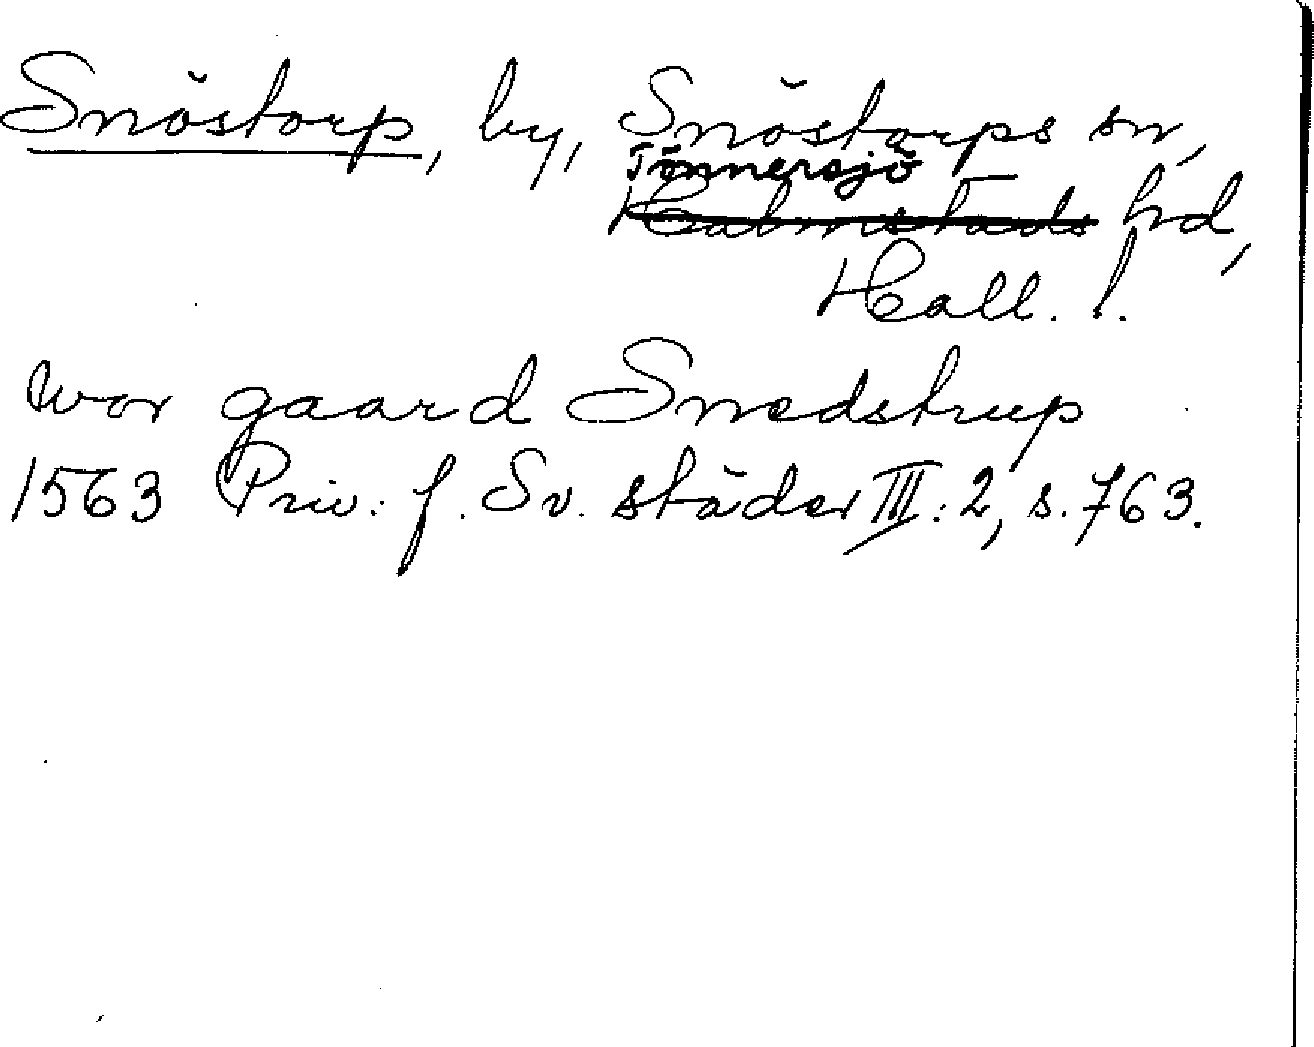 Snöstorp, by, Snöstorps sn,
Tönnersjö
Halmstads hd,
Hall. l.
wor gaard Snedstrup
1563 Priv. f. Sv. städer III:2, s. 763.